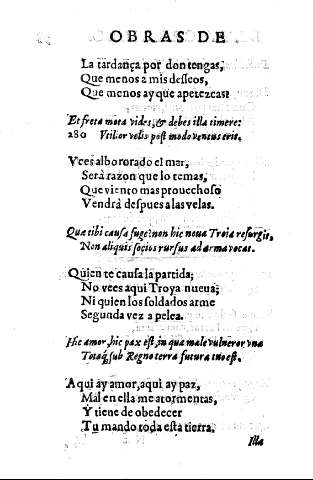 OBRAS DE
La tardança por don tengas,
Que menos a mis desseos,
Que menos ay que apetezcas?
Et freta mota vides, & debes illa timere:
280 Vtilior velis post modo ventus erit.
Vees albororado el mar,
Será razon que lo temas,
Que viento mas prouechoso
Vendrá despues a las velas.
Quæ tibi causa fugę? non hic noua Troia resurgit,
Non aliquis socios rursus ad arma vocat.
Quien te causa la partida;
No vees aqui Troya nueua;
Ni quien los soldados arme
Segunda vez a pelea.
Hic amor, hic pax est, in qua male vulneror vna
Totaq; sub Regno terra futura tuo est.
Aqui ay amor, aqui ay paz,
Mal en ella me atormentas,
Y tiene de obedecer
Tu mando toda esta tierra.
Illa